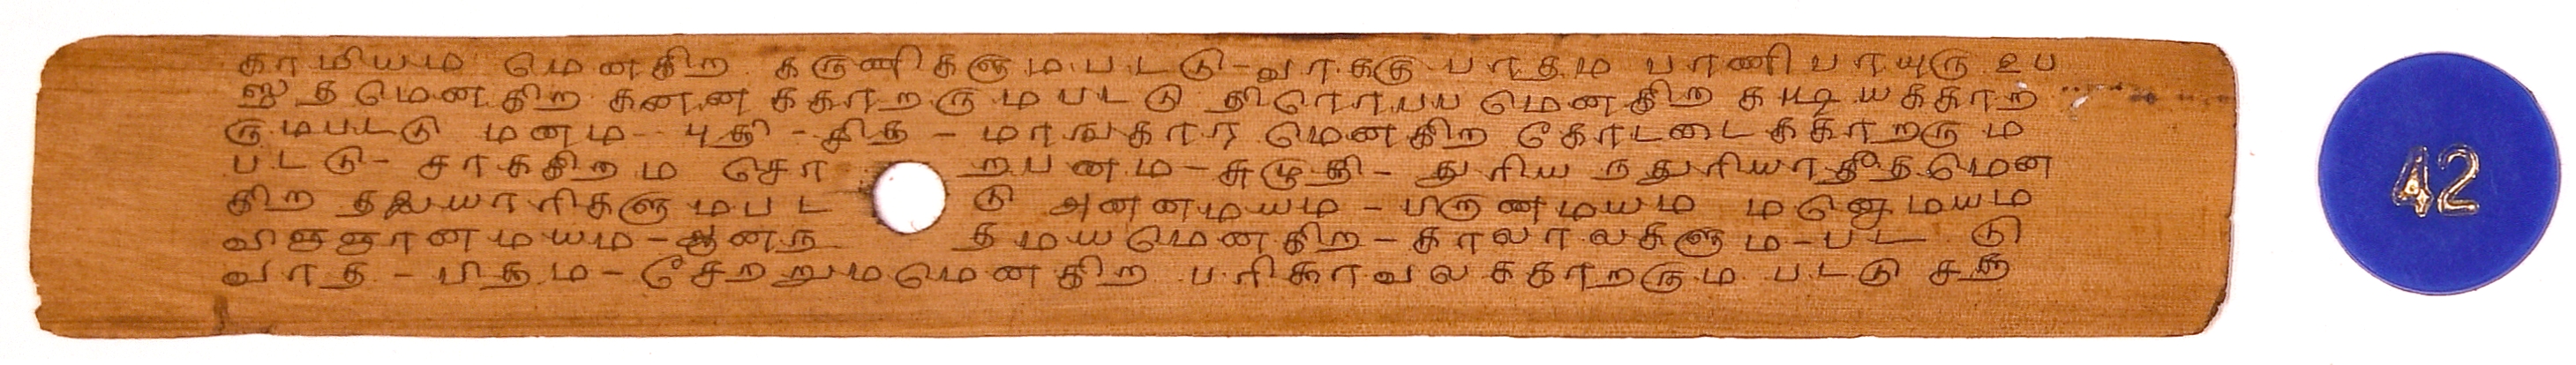 காமியம மெனகிற கருணிகளுமபடடு-வாககு பாதம பாணிபாயுரு உப
ஸதமெனகிற கனனககாறருமபடடு திரொயய மெனகிற காடியககாற
ருமபடடு மனம-புதி-சித-மாஙகார மெனகிற கோடடைககாறரும
படடு-சாககிறம சொறபனம-சுழுததி-துரிய நதுரியாதீதமென
கிற தலையாரிகளுமபடடு அனனமயம-பிருணமயம மனெமயம
விஞஞானமயம-ஆனநதமயமெனகிற-காலாலகளும-படடு
வாத-பிதம-சேறறுமமெனகிற பரிகாவலககாறரும படடு சத
42